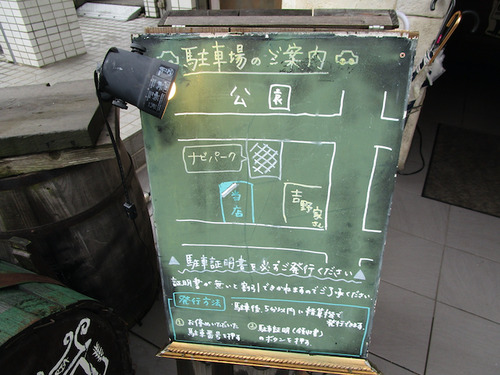 駐車場のご案内
公園
ナビパーク
当店
吉野家さん
駐車証明書を必ずご発行ください
証明書が無いと割引できかねますのでご了承ください
発行方法
駐車後、5分以内に精算機で発行できます
①お停めいただいた駐車番号を押す
②駐車証明(領収書)のボタンを押す